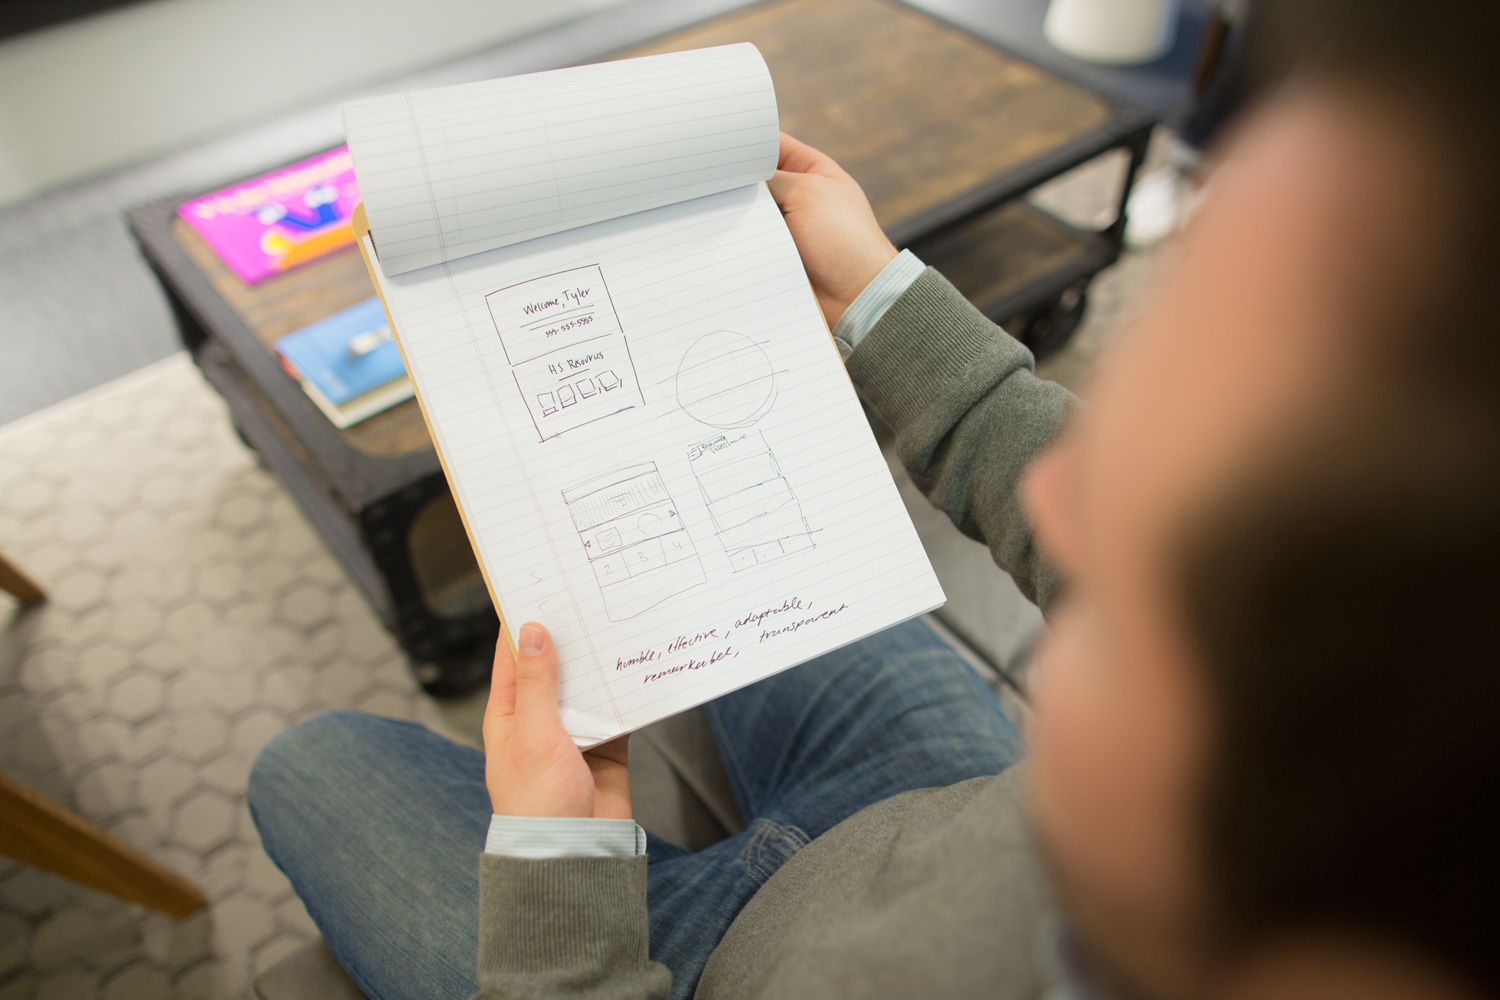 Welcome, Tyler
555-555-5555
HS Resources
Welcome
2 3 4
humble, effective, adaptable,
remarkabel, transparent